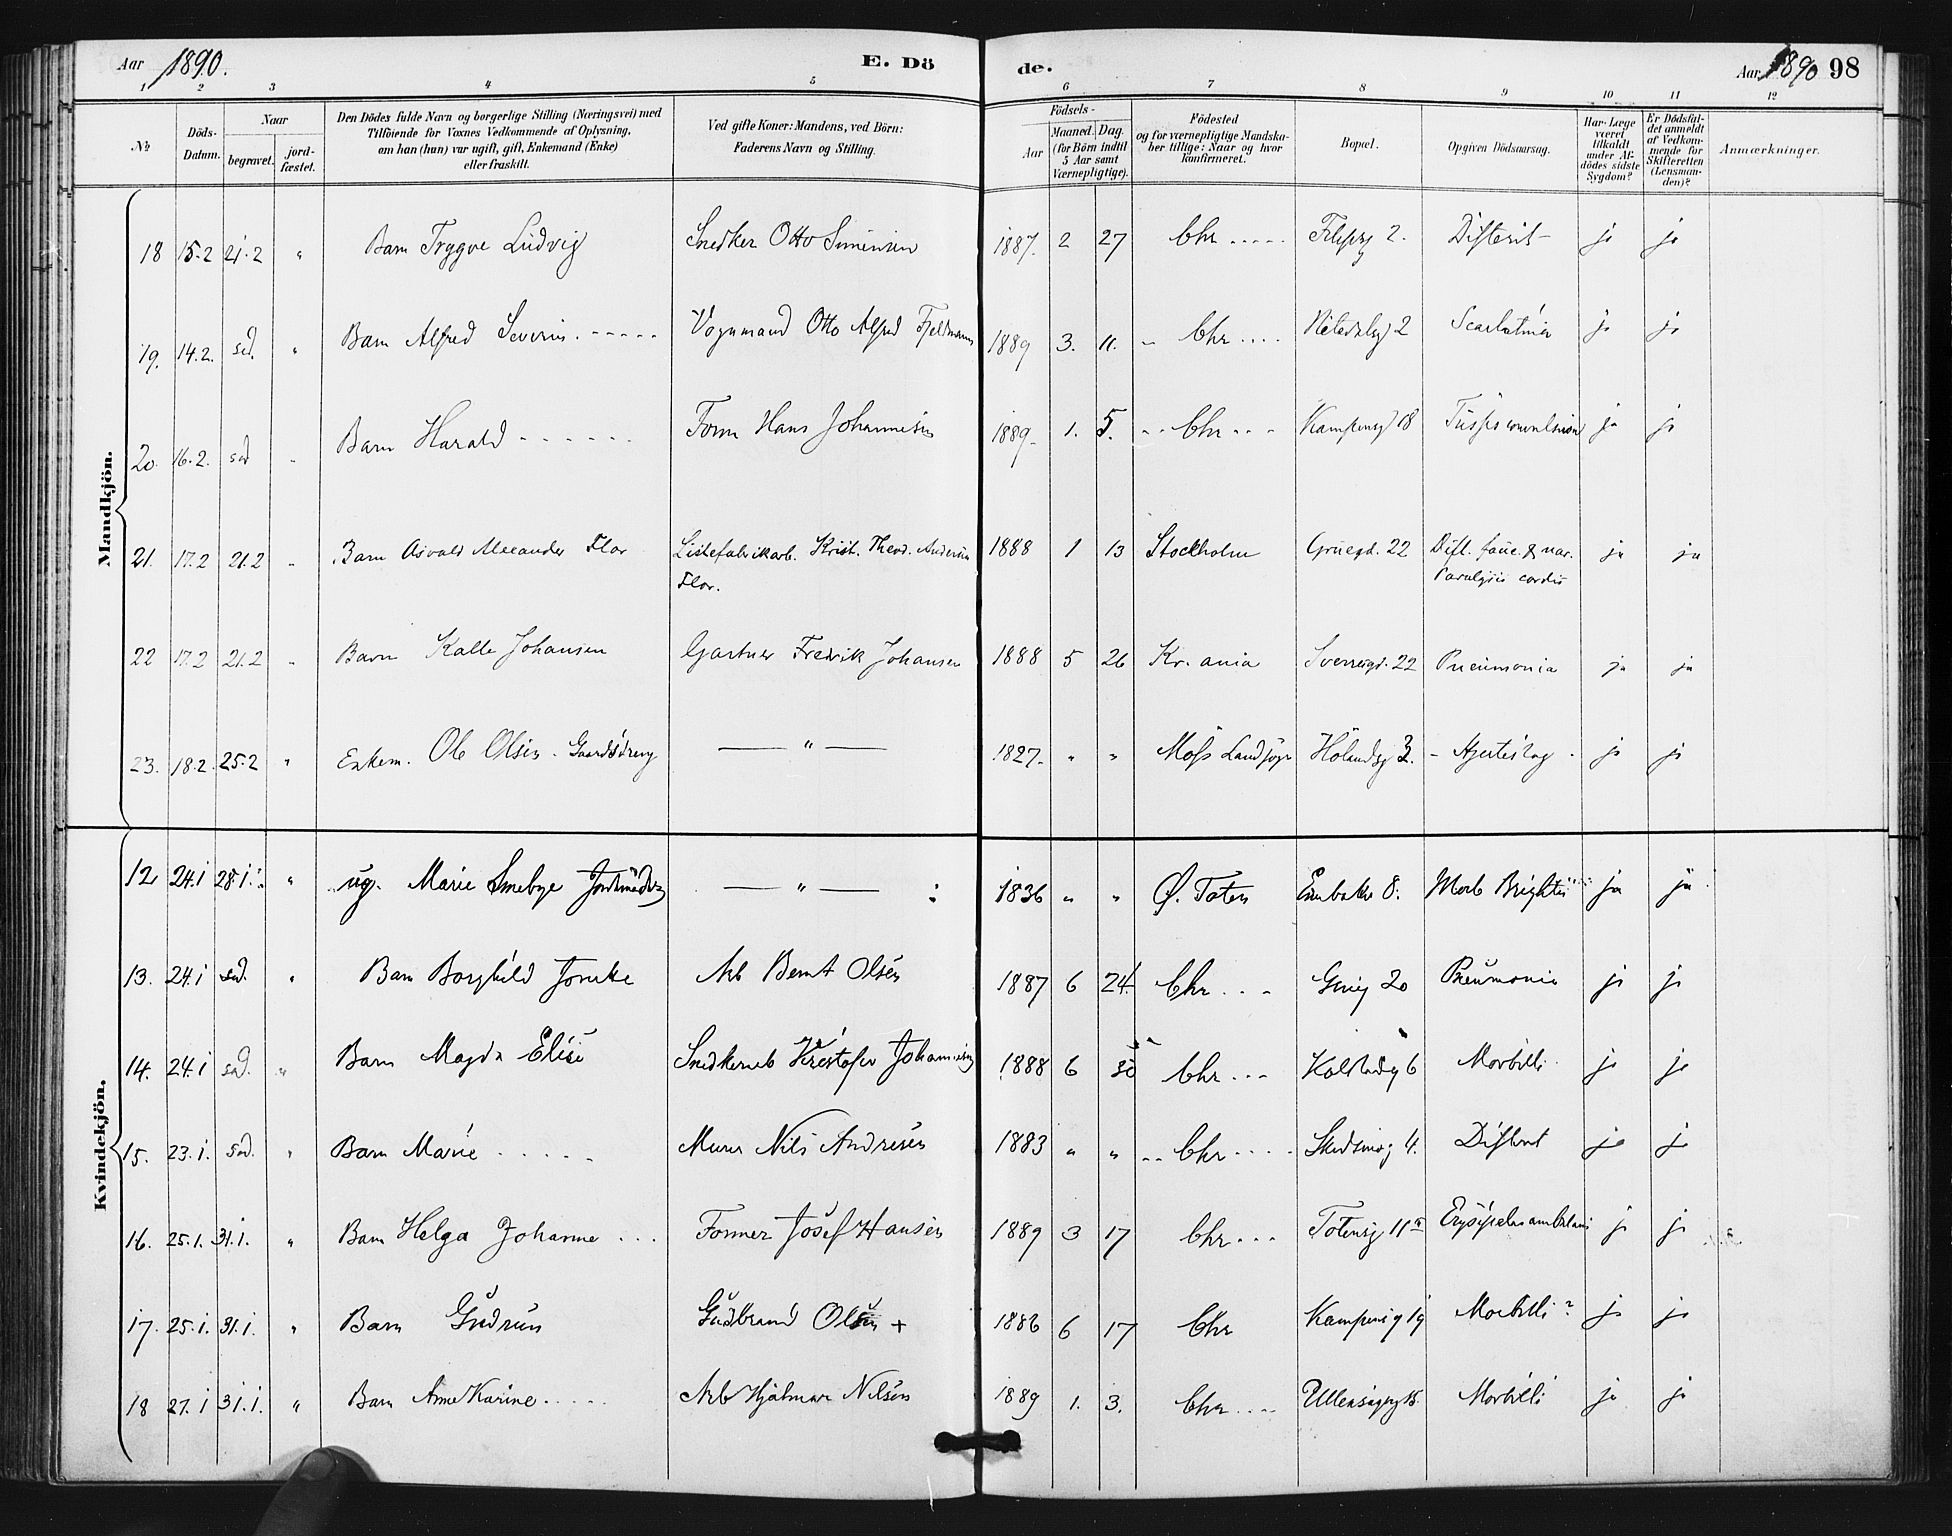 Aar 1890. E. Dö de. Aar 1890 98
1 2 3 4 5 6 7 8 9 10 11 12
№ Döds-Datum. Naar begravet. jord-fæstet.
Den Dödes fulde Navn og borgerlige Stilling (Næringsvei) med
Tilföiende for Voxnes Vedkommende af Oplysning,
om han (hun) var ugift, gift, Enkemand (Enke)
eller fraskilt.
Ved gifte Koner: Mandens, ved Börn:
Faderens Navn og Stilling.
Födsels-
Aar Maaned. Dag.
(for Börn indtil
5 Aar samt
Værnepligtige).
Födested
og for værnepligtige Mandska-
ber tillige: Naar og hvor
konfirmeret.
Bopæl.
Opgiven Dödsaarsag.
Har Læge
været
tilkaldt
under Af-
dödes sidste
Sygdom?
Er Dödsfal-
det anmeldt
af Vedkom-
mende for
Skifteretten
(Lensman-
den)?
Anmærkninger.
Mandkjön.
18 15.2 21.2 " Barn Trygve Ludvig Snedker Otto Simensen 1887. 2 27 Chr ..... 2. Difterit - ja ja
19. 14.2. sad. " Barn Alfred Severin. ----- Vognmand Otto Alfred Fjeldmann 1889 3. 11. - Chr .... 2 Scarlatina ja ja
20. 16.2. sad " Barn Harald ------ Form Hans Johannesen 1889- 1. 5. -- Chr --- Kampensg 18 Tussis convulsiva ja ja
21. 17.2 21.2 " Barn Asvald Alexander Flor Listefabrikarb. Krist. Theod. Andersen 1888 1 13 Stockholm Gruegd. 22 Dift. fauc. & nar. ja ja
Flor. Paralysis cordis
22 17.2 21.2 " Barn Kalle Johansen Gartner Fredrik Johansen 1888 5 26 Kr.ania Sverresgd. 22 Pneumonia ja ja
23. 18.2. 25.2 " Enkem. Ole Olsen - Gaardsdreng — " — 1827- " " Moss Landsogn Hölandsg 3. - Hjerteslag - ja ja
Kvindekjön.
12 24.1 28.1. " ug. Marie Smebye Jordmoder — " — 1836 " " Ø. Toten Enebakkv 8. Morb Brightii ja ja
13. 24.1 sad. " Barn Borghild Arb Bernt Olsen 1887 6 24. Chr ... Grueg 20 Pneumonia ja ja
14. 24.1 sad. " Barn Magda Elise Snedkerarb Kristofer Johannesen 1888 6 30 Chr ... Kolstadg 6 Morbilli ja ja
15. 23.1. sad. " Barn Marie ..... Murer Nils Andresen 1883 " " -- Chr .... Skedsmog 4. Difterit ja ja
16. 25.1. 31.1. " Barn Helga Johanne ... Former Josef Hansen 1889 3 17 Chr ... Totensg 11a Erysipelas ambulans ja ja
17. 25.1. 31.1. " Barn Gudrun Gudbrand Olsen + 1886 6 17 Chr Kampensg 19 Morbilli ? ja ja
18 27.1 31.1. " Barn Anne Karine ..... Arb Hjalmar Nilsen 1889 1. 3. Chr .... Ullensagerg 15. Morbilli ja ja